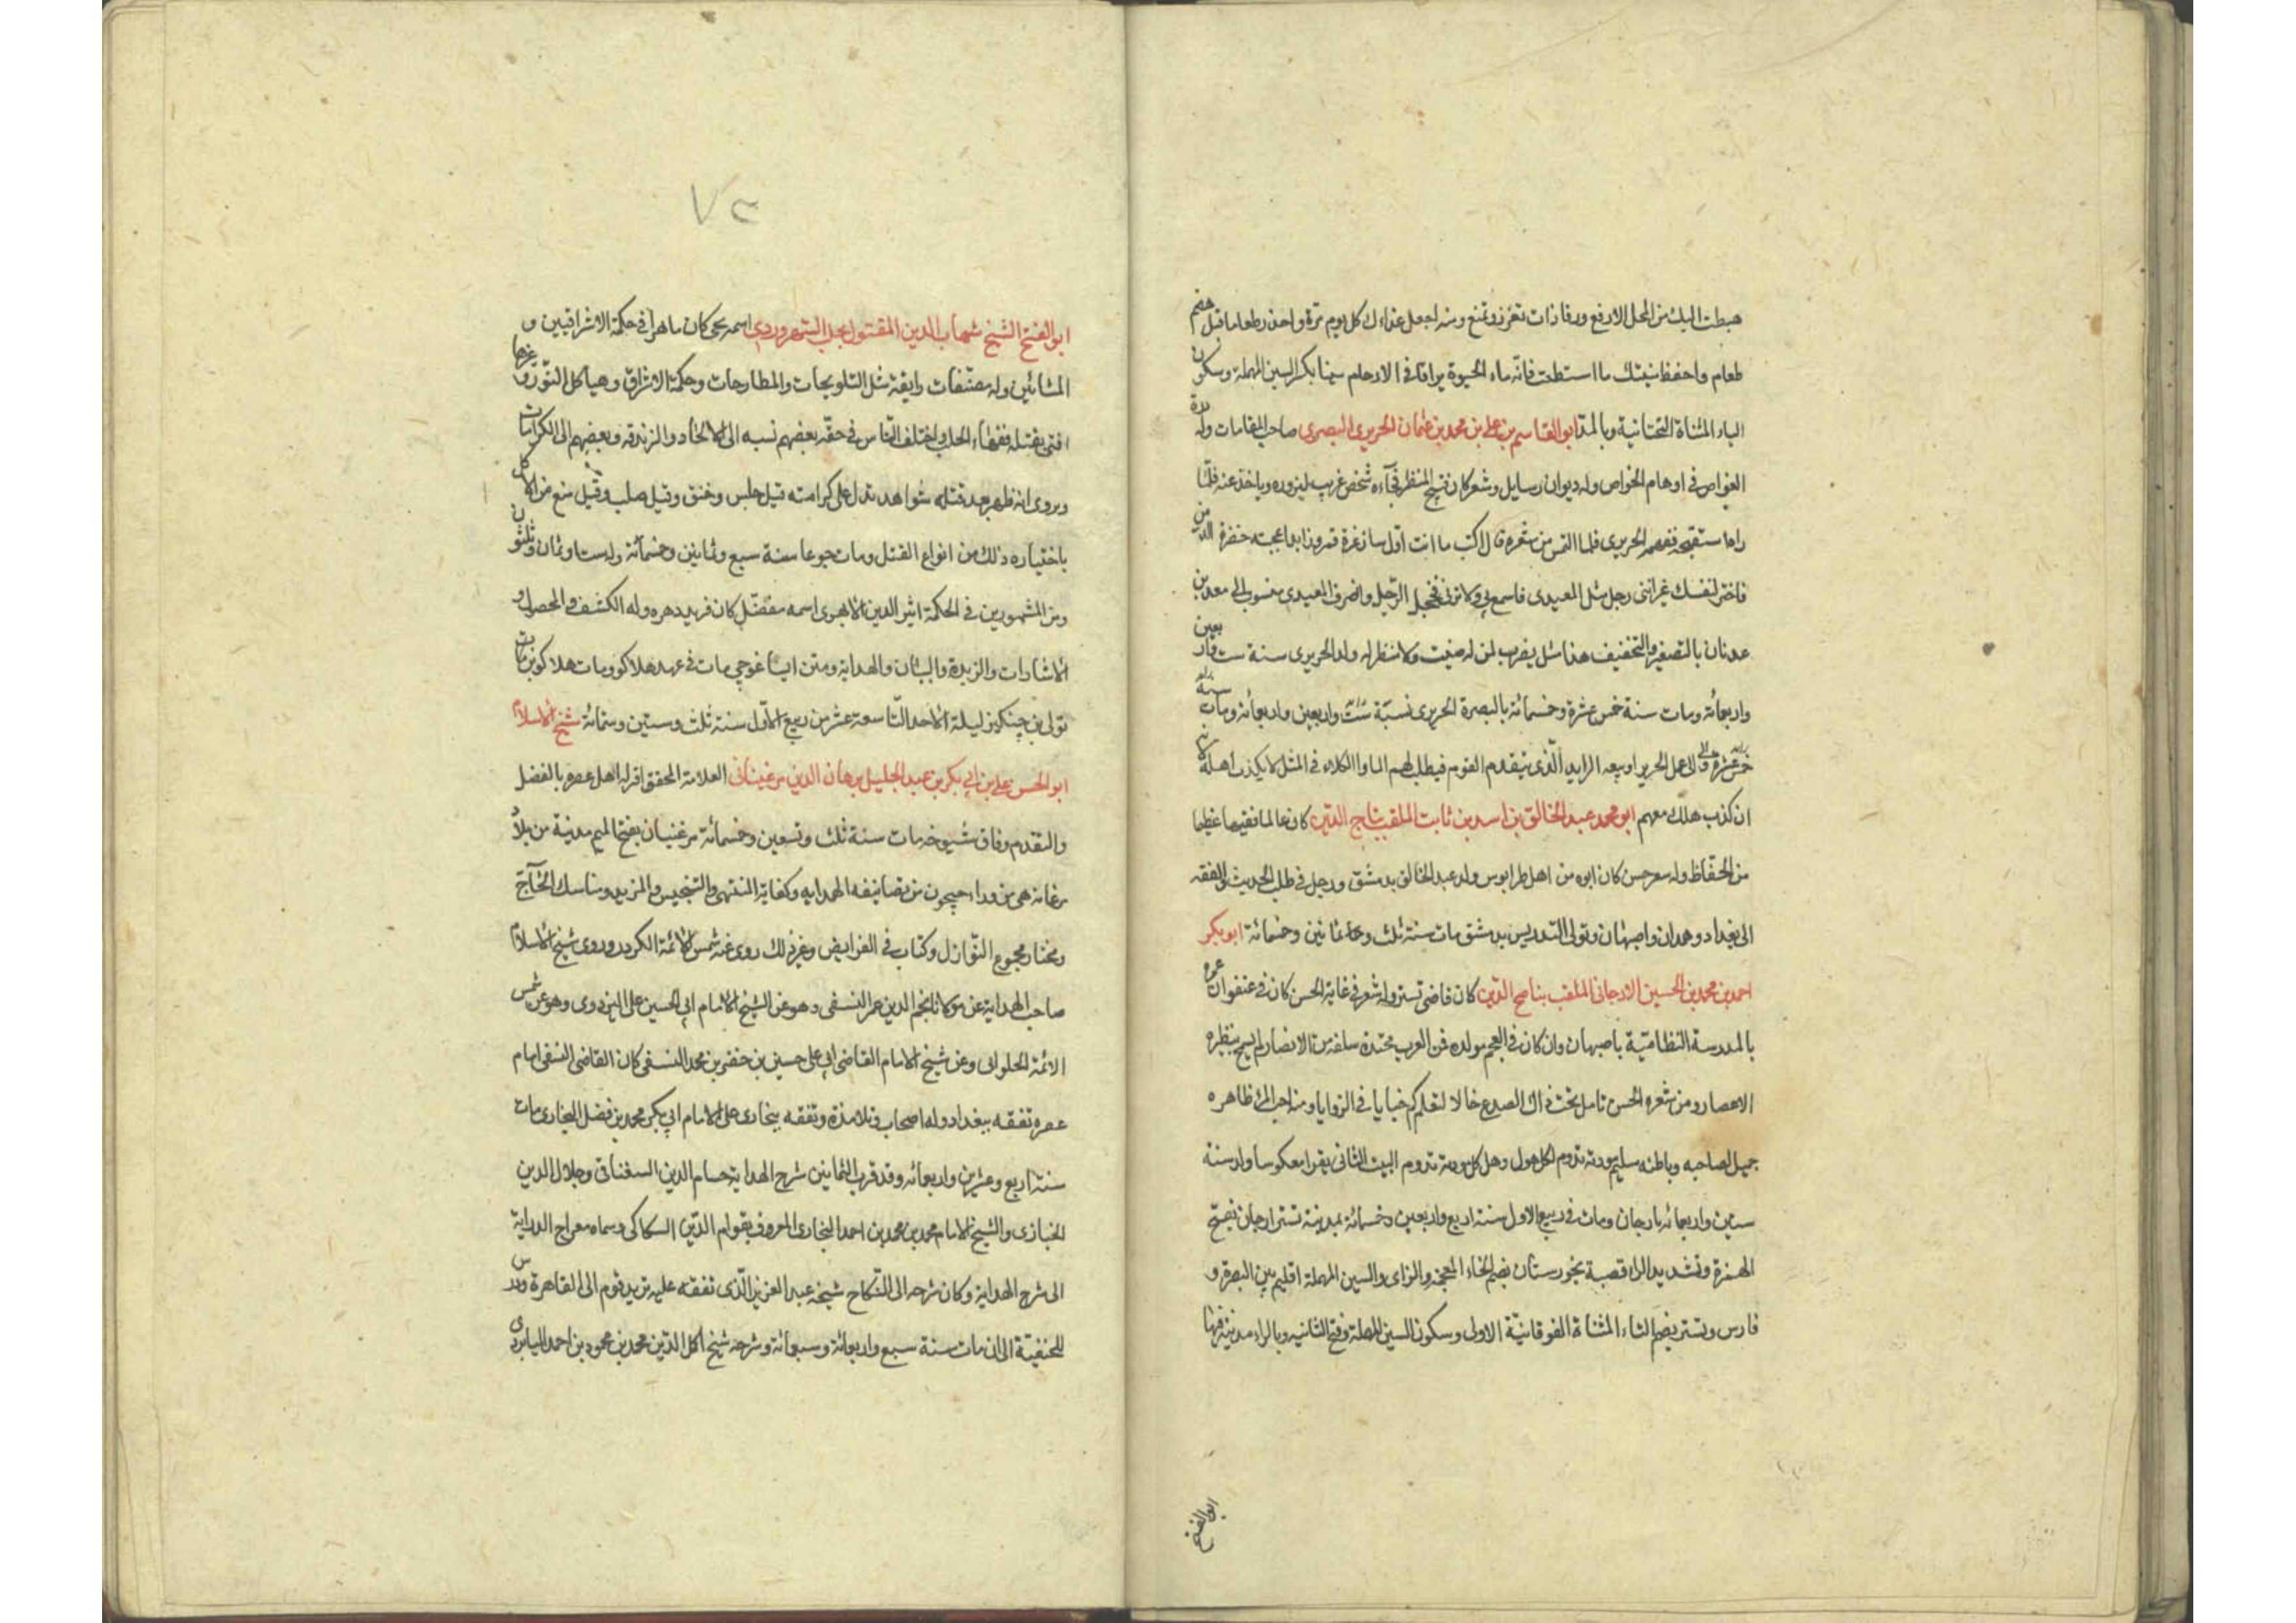 هبطت اليك من المحل الارفع ورقا ذات تعزز وتمنع ومنه اجعل غذاءك كل يوم مرة واحذر طعاما قبل هضم
طعام واحفظ منيك ما استطعت فانه ماء الحيوة يراق في الارحام سينا بكسر السين المهملة وسكون
الياء المثناة التحتانية وبالمد ابو القاسم بن علي بن محمد بن عثمان الحريري البصري صاحب المقامات وله درة
الغواص في اوهام الخواص وله ديوان رسايل وشعر كان قبيح المنظر فجآءه شخص غريب ليزوره وياخذ عنه فلما
راه استقبحه ففهم الحريري فلما التمس من شعره قال اكتب ما انت اول سار غرة قمر ورايد اعجبته خضرة الدمن
فاختر لنفسك غيري انني رجل مثل المعيدي فاسمع بي ولا ترني فخجل الرجل وانصرف المعيدي منسوب الى معد بن
عدنان بالتصغير والتخفيف هذا مثل يضرب لمن له صيت ولا منظر له ولد الحريري سنة ست واربعين
واربعمائة ومات سنة خمس عشرة وخمسمائة بالبصرة الحريري نسبة ست واربعين واربعمائة ومات سنة
خمس عشرة والى عمل الحرير او بيعه الرايد الذي يتقدم القوم فيطلب لهم الماء والكلاء في المثل لا يكذب اهله لانه
ان كذب هلك معهم ابو محمد عبد الخالق بن اسد بن ثابت الملقب بتاج الدين كان عالما فقيها عظيما
من الحفاظ وله شعر حسن كان ابوه من اهل طرابلوس ولد عبد الخالق بدمشق ورحل في طلب الحديث والفقه
الى بغداد وهمدان واصبهان وتولى التدريس بدمشق مات سنة ثلث وثمانين وخمسمائة ابو بكر
احمد بن محمد بن الحسين الارجاني الملقب بناصح الدين كان قاضي تستر وله شعر في غاية الحسن كان في عنفوان عمره
بالمدرسة النظامية باصبهان وان كان في العجم مولده فمن العرب محتده سلفه من الانصار لم يسمح بنظيره
الاعصار ومن شعره الحسن تامل تحت ذاك الصدغ خالا لتعلم كم خبايا في الزوايا ومنه احب المرء ظاهره
جميل لصاحبه وباطنه سليم مودته تدوم لكل هول وهل كل مودته تدوم البيت الثاني يقرا معكوسا ولد سنة
ستين واربعمائة بارجان ومات في ربيع الاول سنة اربع واربعين وخمسمائة بمدينة تستر ارجان بفتح
الهمزة وتشديد الراء قصبة بخورستان بضم الخاء المعجمة والزاى والسين المهملة اقليم بين البصرة و
فارس وتستر بضم التاء المثناة الفوقانية الاولى وسكون السين المهملة وفتح الثانيه وبالراء مدينة فيها
ابو الفتح
٧٢
ابو الفتح الشيخ شهاب الدين المقتول بحلب السهروردي اسمه يحيى كان ماهرا في حكمة الاشراقيين و
المشائين وله مصنفات رايقة مثل التلويحات والمطارحات وحكمة الاشراق وهياكل النور وغيرها
افتى بقتله فقهاء الحلب واختلف الناس في حقه بعضهم نسبه الى الالحاد والزندقه وبعضهم الى الكرامات
ويروى انه ظهر بعد قتله شواهد تدل على كرامته قيل حبس وخنق وقيل صلب وقيل منع من الاكل
باختياره ذلك من انواع القتل ومات جوعا سنة سبع وثمانين وخمسمائة وله ست او ثمان وثلثون
ومن المشهورين في الحكمة اثير الدين الابهري اسمه مفضل كان فريد دهره وله الكشف والمحصول و
الاشارات والزبدة والبيان والهداية ومتن ايساغوجي مات في عهد هلاكو ومات هلاكو بن
تولي بن چنكيز ليلة الاحد التاسعة عشر من ربيع الاول سنة ثلث وستين وستمائة شيخ الاسلام
ابو الحسن علي بن ابي بكر بن عبد الجليل برهان الدين مرغيناني العلامة المحقق اقر له اهل عصره بالفضل
والتقدم وفاق شيوخه مات سنة ثلث وتسعين وخمسمائة مرغنيان بفتح الميم مدينة من بلاد
فرغانه هى من وراء جيحون من تصانيفه الهدايه وكفاية المنتهى والتنجيس والمزيد ومناسك الحآج
ومختار مجموع النوازل وكتاب في الفرايض وغير ذلك روى عنه شمس الائمة الكردري وروى شيخ الاسلام
صاحب الهداية عن مولانا نجم الدين عمر النسفى وهو عن الشيخ الامام ابي الحسين علي البزدوى وهو عن شمس
الائمة الحلواني وعن شيخ الامام القاضى ابي علي حسين بن خضر بن محمد النسفى كان القاضى النسفى امام
عصره تفقه ببغداد وله اصحاب وتلامذة وتفقه ببخارى على الامام ابي بكر محمد بن فضل البخارى مات
سنة اربع وعشرين واربعمائه وقد قرب الثمانين شرح الهداية حسام الدين السغناقى وجلال الدين
الخبازى والشيخ الامام محمد بن محمد بن احمد البخارى المعروف بقوام الدين السكاكى وسماه معراج الدراية
الى شرح الهداية وكان شرحه الى النكاح شيخه عبد العزيز الذى تفقه عليه بزيد قوم الى القاهرة ودرس
للحنفية الى ان مات سنة سبع واربعائة وسبعمائة وشرحه شيخ اكمل الدين محمد بن محمود بن احمد البابرتى